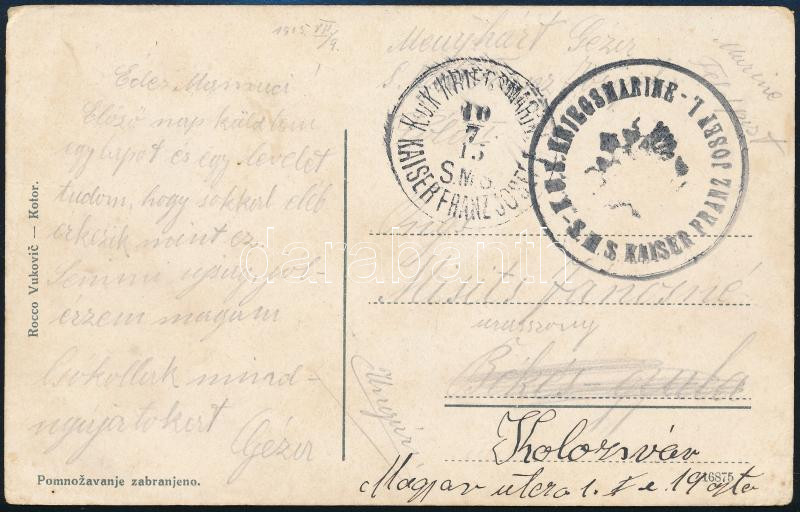 1915 VII/9.
Édes Mamuci!
Előző nap küldtem
egy lapot és egy levelet
tudom, hogy sokkal előb
érkezik mint ez.
Semmi ujság, jól
érzem magam
Csokollak mind-
nyájatokat
Géza
Rocco Vuković — Kotor.
Pomnožavanje zabranjeno.
Menyhárt Géza
Marine
Feldpost
K.u.K. KRIEGSMARINE
10
7
15
S.M.S.
KAISER FRANZ JOSEF I.
K.u.K. KRIEGSMARINE - S.M.S. KAISER FRANZ JOSEF I.
darabanth.com
Misits Jánosné
urasszony
Békés-gyula
Ungarn
Kolozsvár
Magyar utca 1. I. e. 19 ajtó
16875